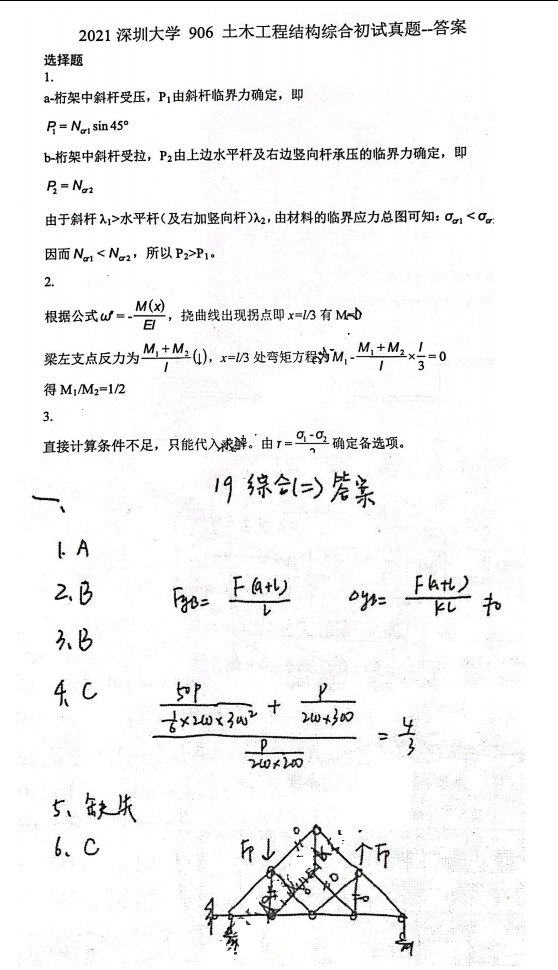 2021 深圳大学 906 土木工程结构综合初试真题--答案
选择题
1.
a-桁架中斜杆受压，P₁由斜杆临界力确定，即
P₁ = N_cr1 sin 45°
b-桁架中斜杆受拉，P₂由上边水平杆及右边竖向杆承压的临界力确定，即
P₂ = N_cr2
由于斜杆 λ₁>水平杆(及右加竖向杆)λ₂，由材料的临界应力总图可知：σ_cr1 < σ_cr
因而 N_cr1 < N_cr2，所以 P₂>P₁。
2.
根据公式 ω" = - M(x)/EI，挠曲线出现拐点即 x=l/3 有 M=0
梁左支点反力为 (M₁ + M₂)/l (↓)，x=l/3 处弯矩方程为 M₁ - (M₁ + M₂)/l × l/3 = 0
得 M₁/M₂=1/2
3.
直接计算条件不足，只能代入求解。由 τ = (σ₁ - σ₂)/2 确定备选项。
19 综合(二) 答案
一、
1. A
2、B F_yB = F(a+l)/l Δ_yB = F(a+l)/kl ≠0
3、B
4、C (50P/(1/6×200×300²) + P/(200×300)) / (P/(200×200)) = 4/3
5、缺失
6、C
Fp↓ ↑Fp